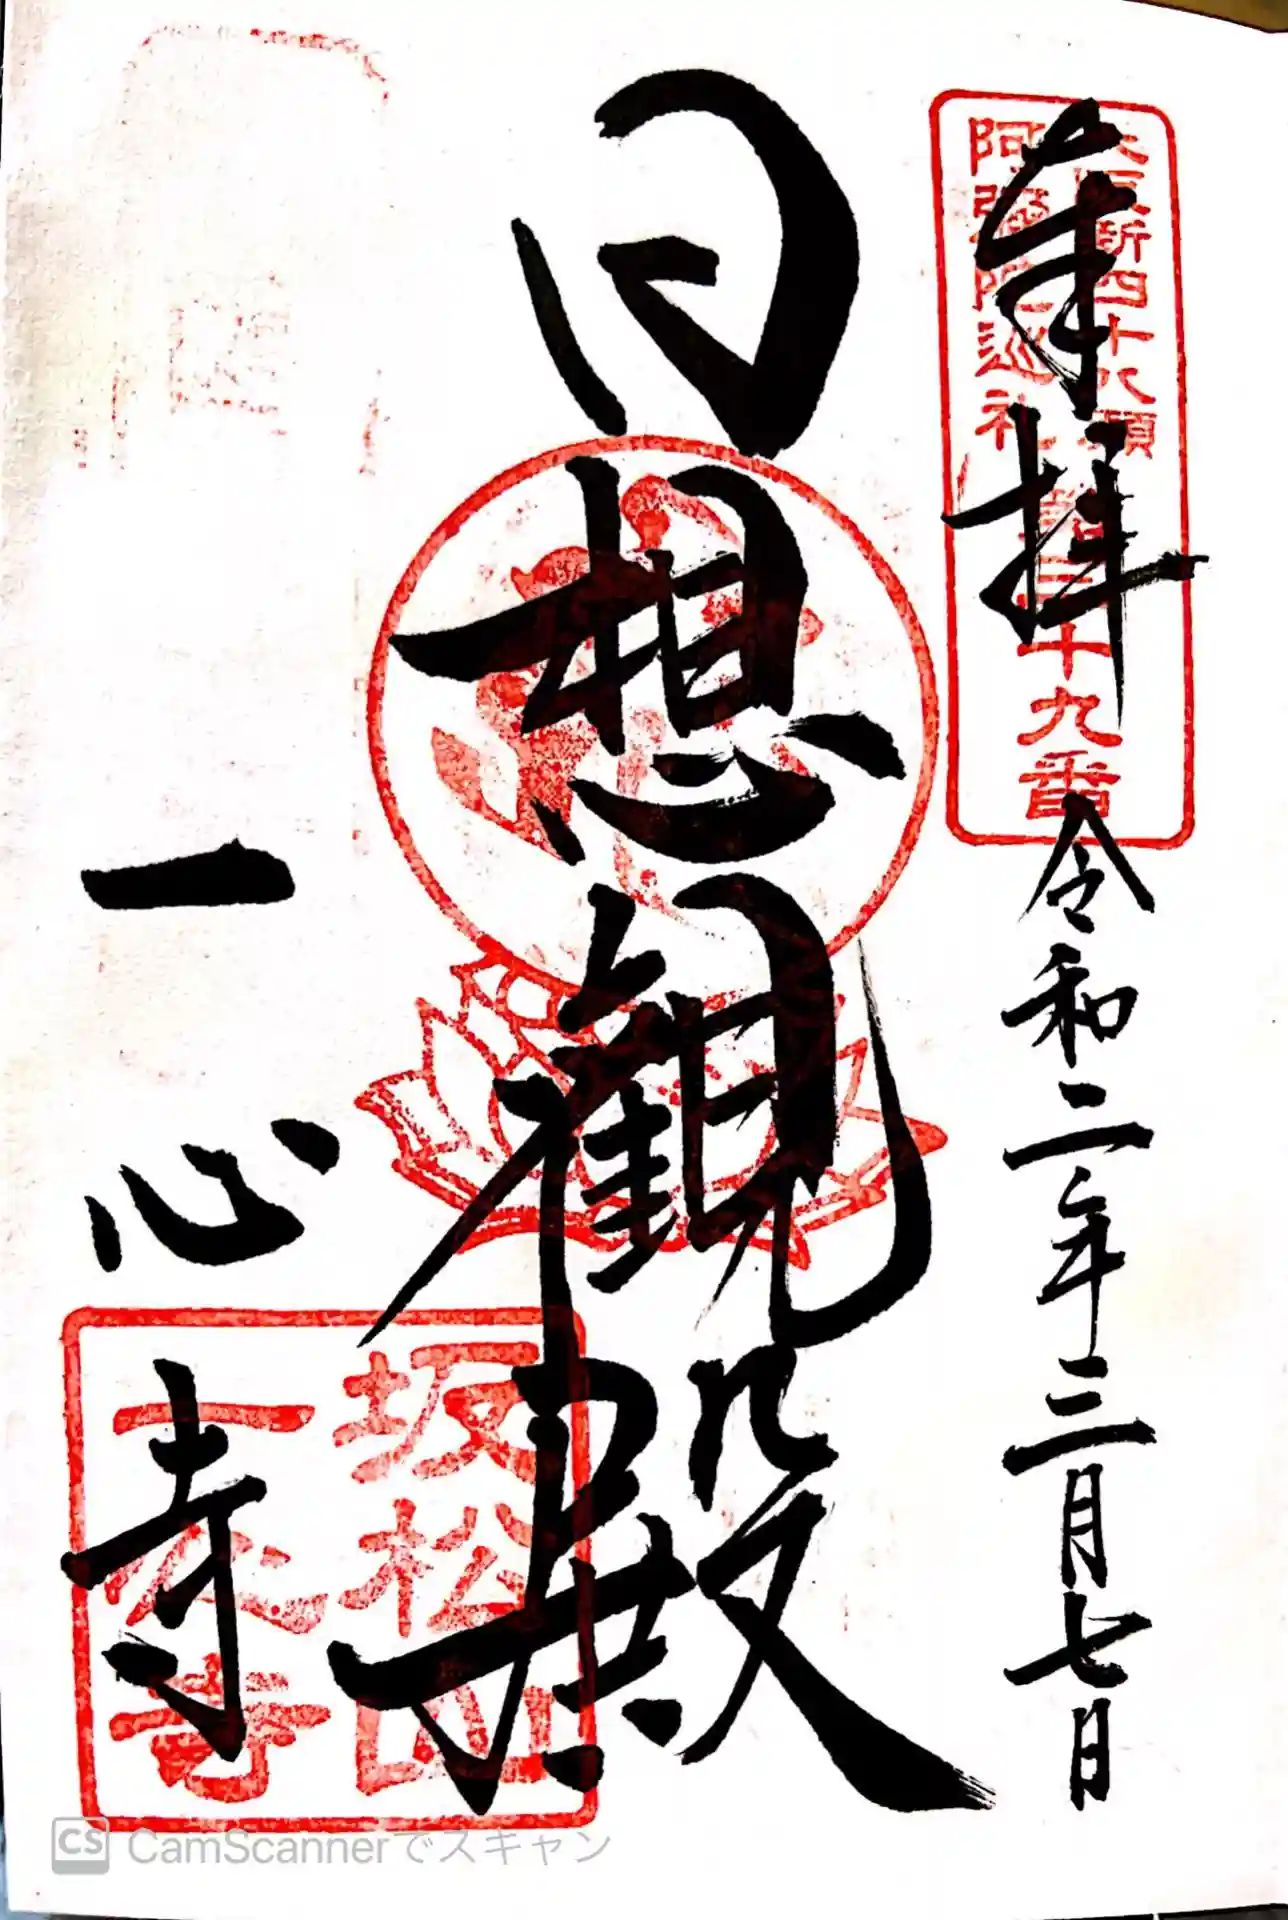 奉拝
令和二年三月七日
大阪新四十八願
阿弥陀巡礼
第三十九番
日想観殿
一心寺
坂松山
一心寺
CS CamScannerでスキャン